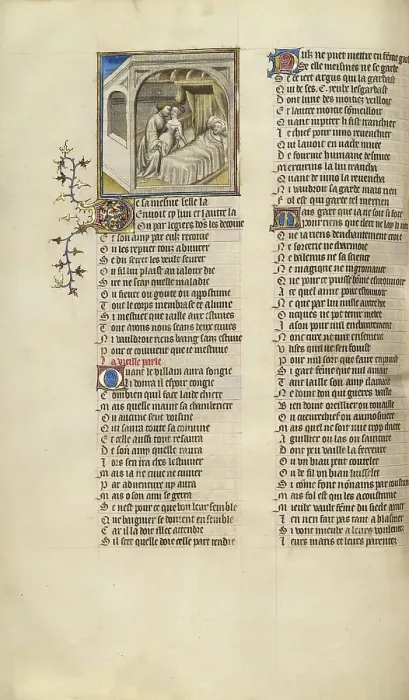 Et son amy par eulx recorre
Se du secret les veult seurer
Ou sil lui plaist au ialour die
Ne ne scay quelle maladie
Ou fieure ou goute ou apostume
Tout le corps membrast et alume
Si mestuet que iaille aux estuues
Tout auons nous ceans deux cuues
Ni vauldroit riens baing sans estuue
Pour ce couuient que ie mestuue
La vieille parle
Quant le villain aura songie
Li donra il espoir congie
Combien quil face laide chiere
Mais quelle maint sa chamberiere
Ou aucune seue voisine
Qui saura toute sa couuine
Et celle aussi tout resaura
De son amy quelle aura
Lors sen ira ches lestuuier
Mais ia ne cuue ne cuuier
Par aduenture ny aura
Mais o son ami se gerra
Se nest pour ce que bon leur semble
Que baignier se doiuent ensemble
Car il la doit illec attendre
Sil scet quelle doie celle part tendre
Nulz ne puet mettre en feme garde
Se elle meismes ne se garde
Se ce iert argus qui la gardast
Qui de ses C yeulx lesgardast
Dont lune des moities veilloit
Et lautre moitie someilloit
Quant iupiter li fist trenchier
Le chief pour vengier
Qui lauoit en vache muee
De fourme humaine desnuee
Mercurius la lui trencha
Quant de iuno la reuencha
Ni vauldroit sa garde mais rien
Fol est qui garde tel merrien
Mais gart que ia ne soit si sote
Pour riens que clerc ne lay li note
Que ia riens denchantement croie
Ne sorcerie ne charmoie
Ne balenus ne sa science
Ne magique ne nigromance
Que pour ce puisse home esmouuoir
A ce quel aime pour estouuoir
Ne que par lui nulle autre hee
Oncques ne pot tenir medee
Jason pour nul enchantement
Onc circe ne tint ensement
Ulixes quil ne sen fouist
Pour nul sort que faire en puist
Si gart feme que nul amant
Tant laille son amy clamant
Ne donne don qui guieres vaille
Bien donne oreillier ou touaille
Ou cueurechief ou aumosniere
Mais quel ne soit mie trop chiere
Aguillier ou las ou sainture
Dont peu vaille la ferreure
Ou un biau petit coutelet
Ou de fil un biau luisselet
Si come font nonnains par coustume
Mais fol est qui les acoustume
Mieulx vault feme du siecle amer
Len nen fait pas tant a blasmer
Si vont mieulx a leurs voulentez
Leurs maris et leurs parentez